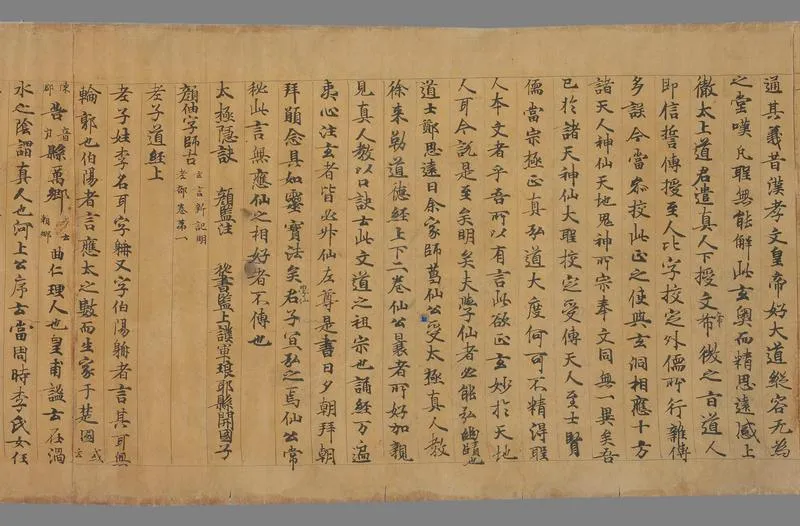 通其義昔漢孝文皇帝好大道縱容无為
之堂嘆凡聖無能解此玄奥而精思遠感上
徹太上道君遣真人下授文帝微之旨道人
即信誓傳授至人比字挍定外儒所行雜傳
多誤今當參挍此正之使與玄洞相應十方
諸天人神仙天地鬼神所宗奉文同無一異矣吾
已於諸天神仙大聖挍定受傳天人至士賢
儒當宗極正真弘道大度何可不精得聖
人本文者乎吾所以有言此欲正玄妙於天地
人耳今説是至矣明矣夫學仙者必能弘幽賾也
道士鄭思遠曰余家師葛仙公受太極真人教
徐来勒道徳經上下二卷仙公曩者所好加親
見真人教以口訣云此文道之祖宗也誦經万遍
夷心注玄者皆必升仙左尊是書日夕朝拜朝
拜願念具如靈寶法矣君子宜弘之焉仙公常
秘此言無應仙之相好者不傳也
太極隠訣 顔監注 秘書監上護軍琅耶縣開國子
顔仙字師古 玄言新記明
老部卷第一
老子道經上
老子姓李名耳字聃又字伯陽聃者言其耳無
輪郭也伯陽者言應太之數而生家于楚國 或云
陳郡 苦 音身 縣萬鄉 或云賴鄉 曲仁理人也皇甫謐云在渦
水之陰謂真人也河上公序云當周時李氏女任